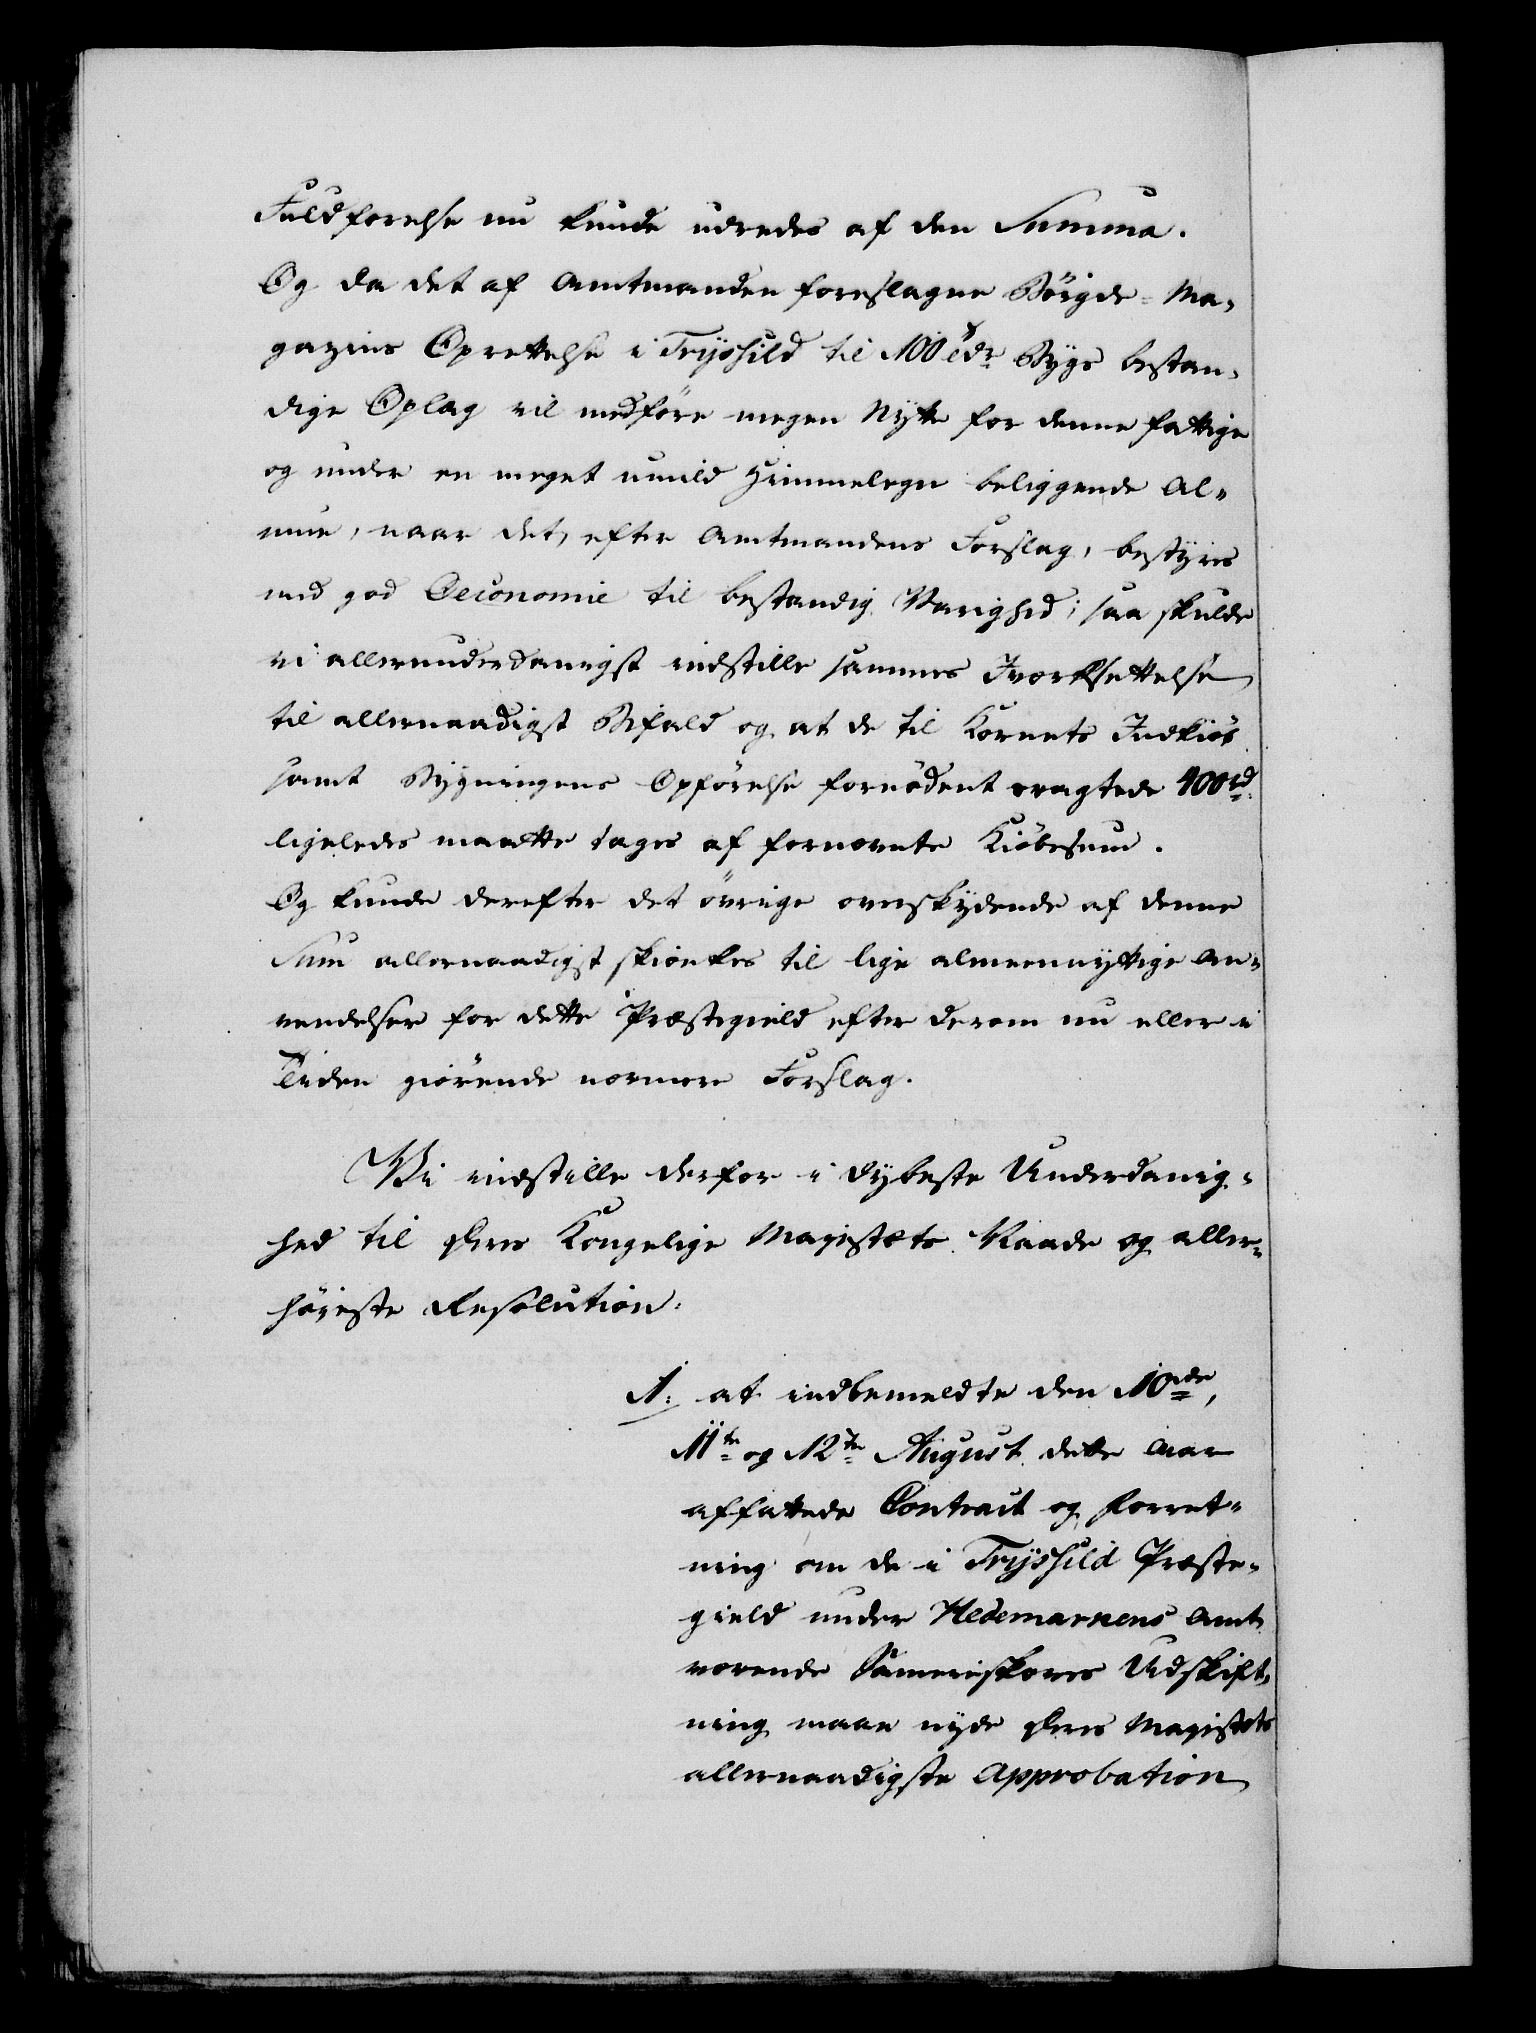 Fuldførelse nu kunde udredes af den Summa.
Og da det af Amtmanden foreslagne Böigde-Ma-
gazins Oprettelse i Trÿssild til 100 tdr Bÿgs bestan-
dige Oplag vil medføre megen Nÿtte for denne fattige
og under en meget umild Himmelegn beliggende Al-
mue, naar det, efter Amtmandens Forslag, bestÿres
med god Oeconomie til bestandig Varighed; saa skulde
vi allerunderdanigst indstille sammes Iværksettelse
til allernaadigst Bifald og at de til Kornets Indkiöb
samt Bÿgningens Opförelse fornödent eragtede 400 rd
ligeledes maatte tages af fornævnte Kiöbesum.
Og kunde derefter det övrige overskÿdende af denne
Sum allernaadigst skiænkes til lige almeennÿttige An-
vendelser for dette Præstegield efter derom nu eller i
Tiden giörende nærmere Forslag.
Vi indstille derfor i dÿbeste Underdanig-
hed til Deres Kongelige Majestæts Naade og aller-
höieste Resolution:
1: at indbemeldte den 10de,
11te og 12te August dette Aar
affattede Contract og Forret-
ning om de i Trÿssild Præste-
gield under Hedemarkens Amt
værende Sameieskoves Udskift-
ning maae nÿde Deres Majestæts
allernaadigste Approbation